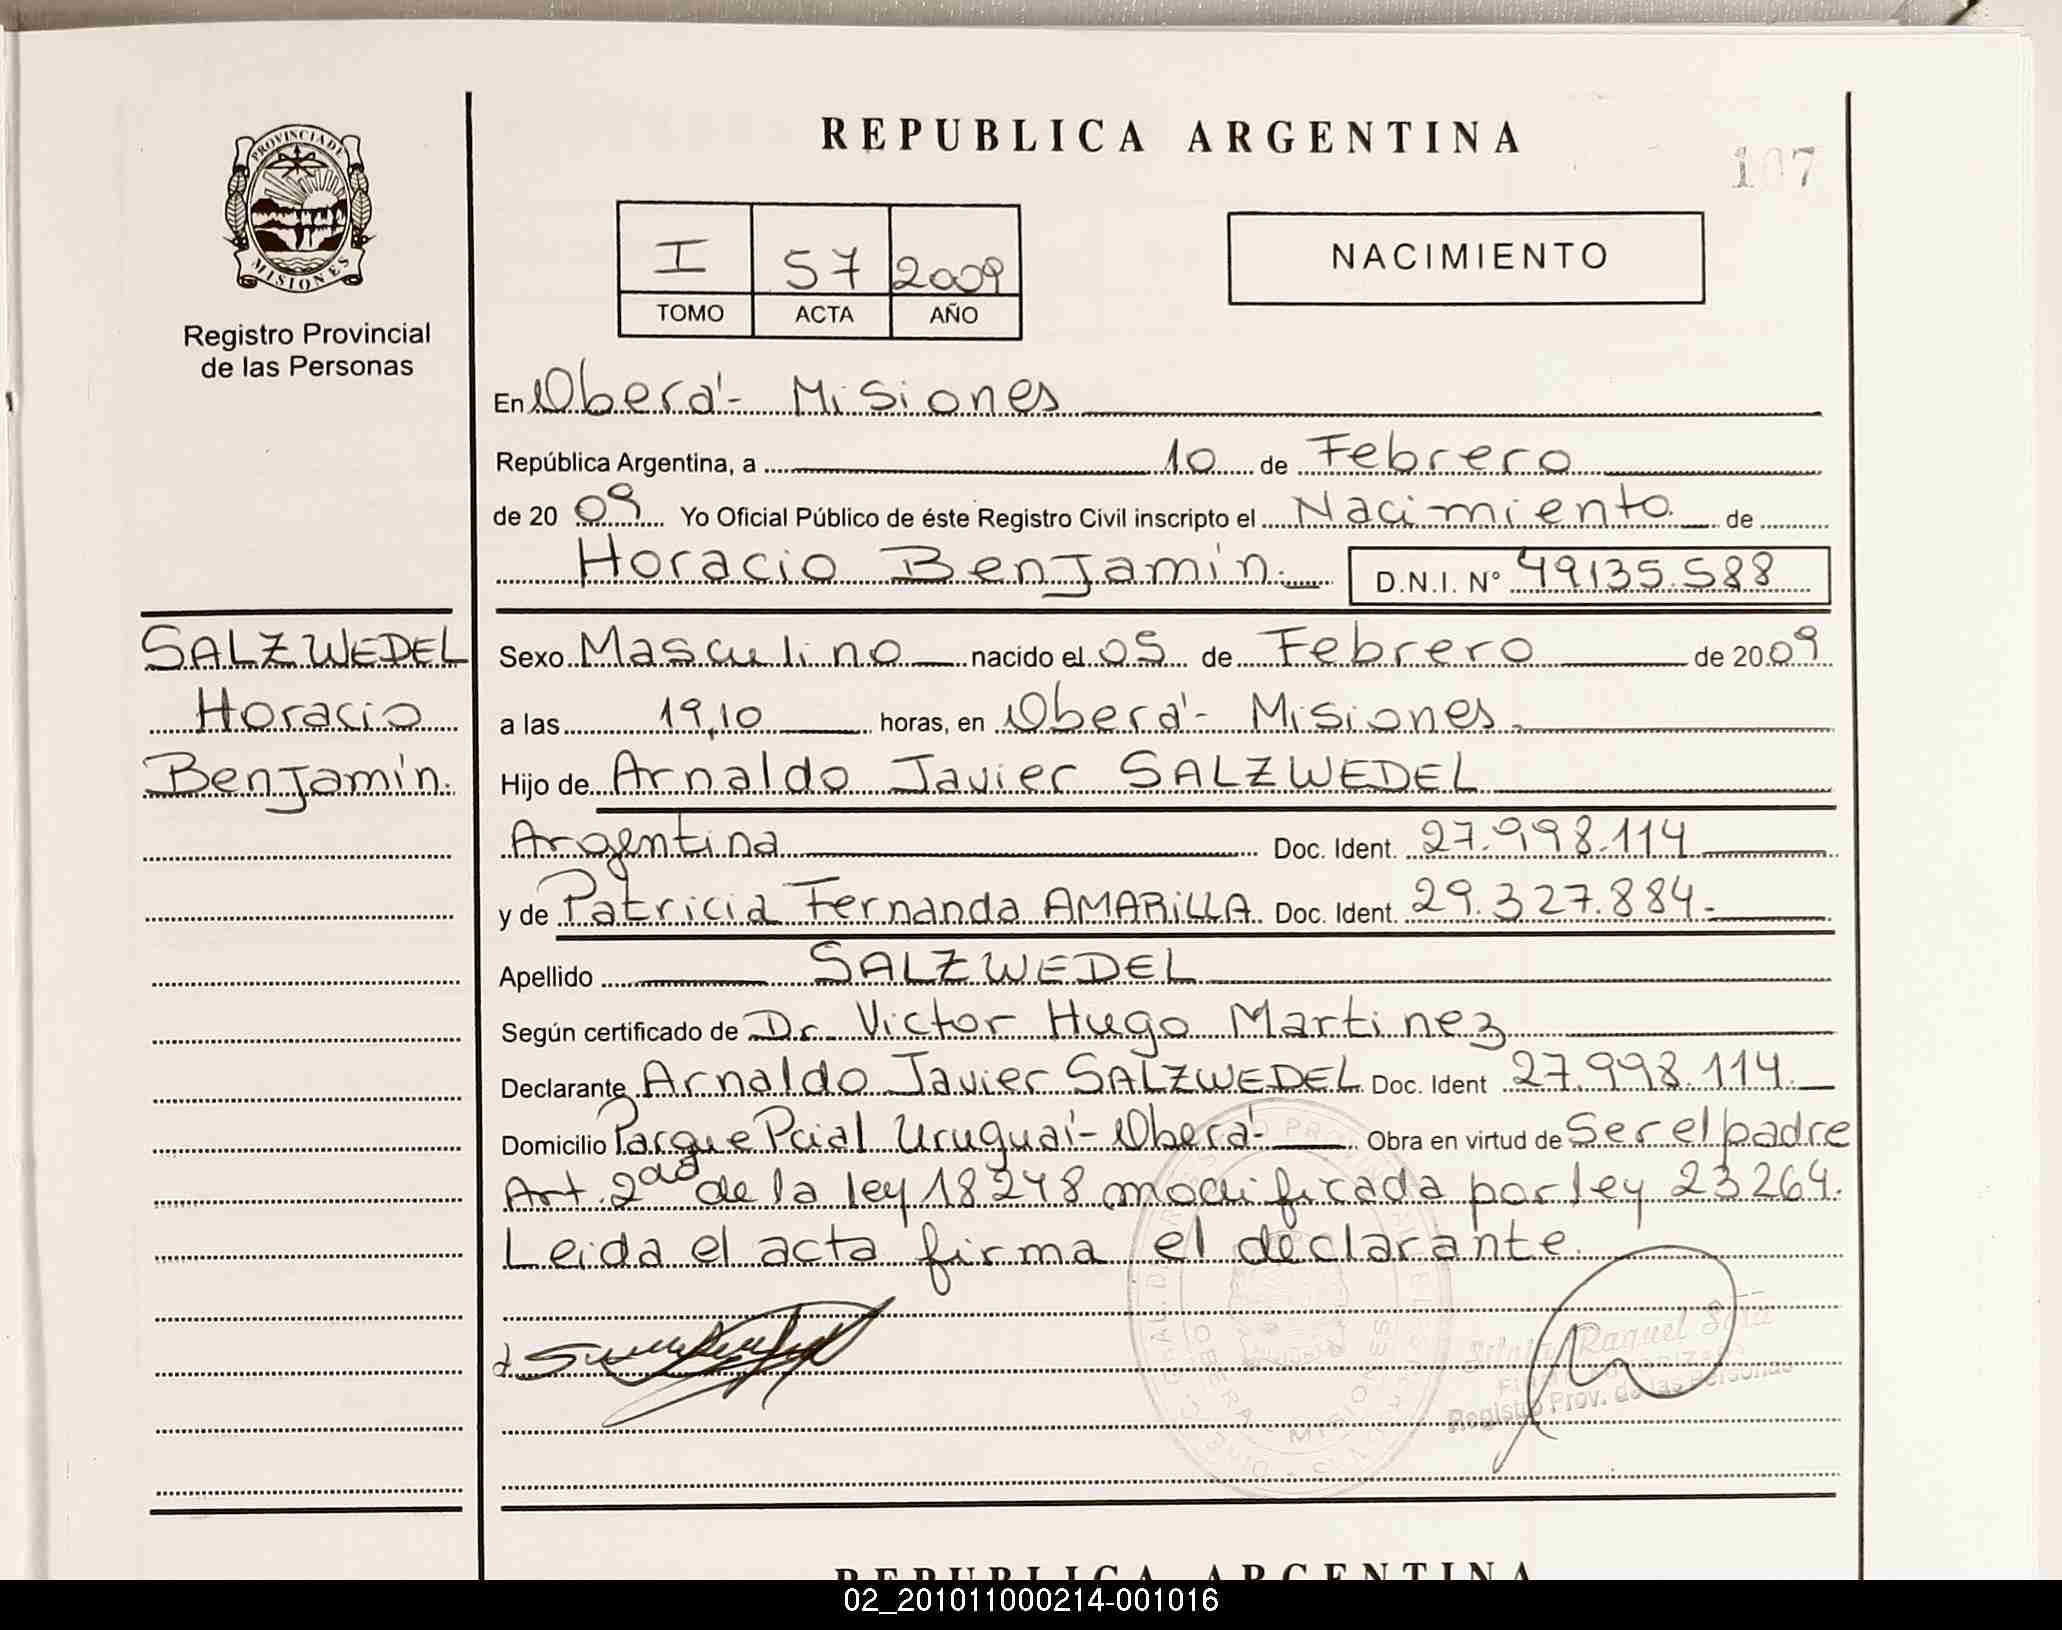 PROVINCIA DE
MISIONES
Registro Provincial
de las Personas
SALZWEDEL
Horacio
Benjamín.
REPUBLICA ARGENTINA
107
I 57 2009
TOMO ACTA AÑO
NACIMIENTO
En Oberá - Misiones
República Argentina, a 10 de Febrero
de 20 09 Yo Oficial Público de éste Registro Civil inscripto el Nacimiento de
Horacio Benjamín. D.N.I. N° 49.135.588
Sexo Masculino nacido el 05 de Febrero de 2009
a las 19,10 horas, en Oberá - Misiones
Hijo de Arnaldo Javier SALZWEDEL
Argentina Doc. Ident. 27.998.114
y de Patricia Fernanda AMARiLLA Doc. Ident. 29.327.884.-
Apellido SALZWEDEL
Según certificado de Dr. Victor Hugo Martinez
Declarante Arnaldo Javier SALZWEDEL Doc. Ident 27.998.114.
Domicilio Parque Pcial Uruguaí - Oberá - Obra en virtud de Ser el padre
Art. 2do de la ley 18248 modificada por ley 23264.
Leida el acta firma el declarante.
OBERA - MISIONES
Raquel
Registro Prov. de las Personas
REPUBLICA ARGENTINA
02_201011000214-001016